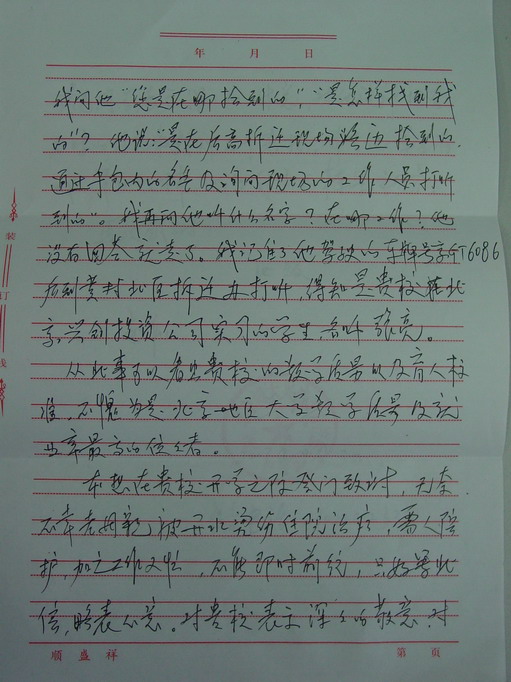 年 月 日
我问他“您是在哪捡到的”，“是怎样找到我
的”？他说：“是在后高拆迁现场路边捡到的，
通过手包内的名毛及询问现场的工作人员打听
到的”。我再问他叫什么名字？在哪工作？他
没有回答就走了。我记住了他驾驶的车牌号京 6086
后到黄村北区拆迁办打听，得知是贵校在北
京兴创投资公司实习的学生，名叫张亮。
从此事可以看出贵校的教学质量以及育人校
准，不愧为是北京地区大学教学质量及就
业率最高的佼者。
本想在贵校开学之际登门致谢，无奈
不幸老母亲被开水烫伤住院治疗，需人陪
护，加之工作又忙，不能即时前往，只好写此
信，略表心意。对贵校表示深深的敬意，对
装
订
线
顺盛祥
第 页